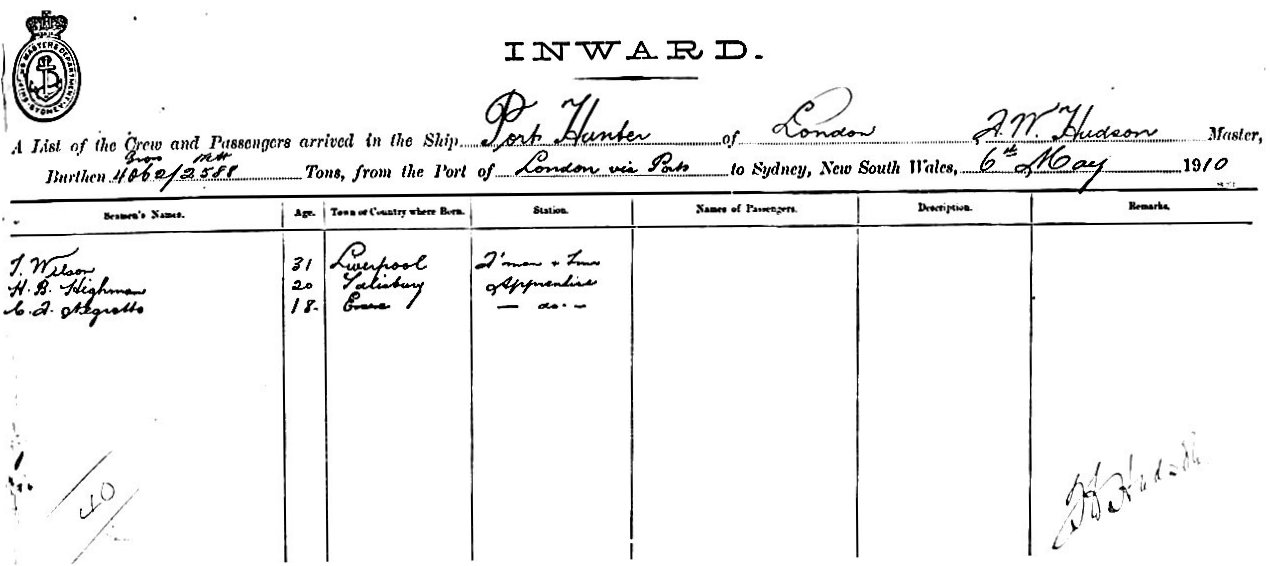 SHIPPING MASTERS DEPARTMENT SYDNEY
INWARD.
A List of the Crew and Passengers arrived in the Ship Port Hunter of London F. W. Hudson Master,
Gros Nett
Burthen 4062/2588 Tons, from the Port of London via Ports to Sydney, New South Wales, 6th May 1910
Seamen's Names. Age. Town or Country where Born. Station. Names of Passengers. Description. Remarks.
T. Wilson 31 Liverpool F'man &
H. B. Highman 20 Salisbury Apprentice
C. F. Negrotto 18 - do. -
40
Hudson